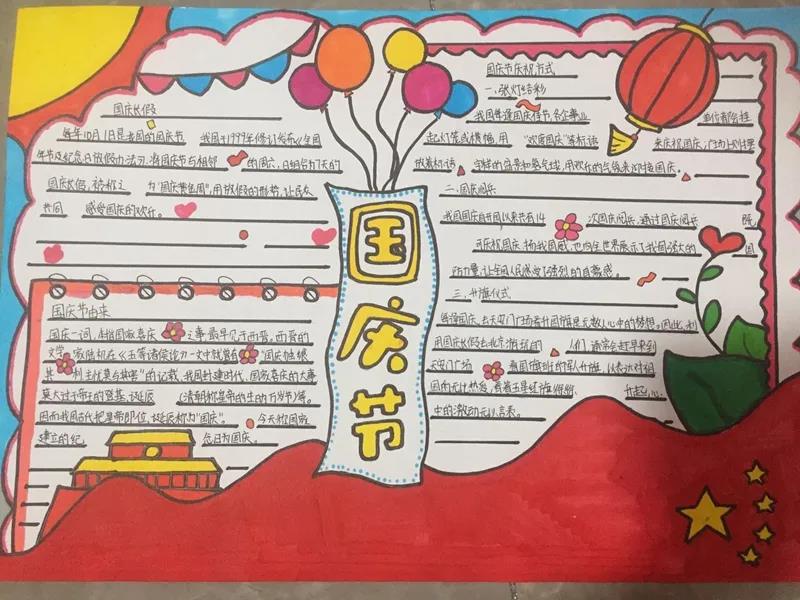 国庆节
国庆长假
每年10月1日是我国的国庆节 我国于1999年修订发布《全国
年节及纪念日放假办法》,将国庆节与相邻 的周六、日组合为7天的
国庆长假,被称之 为“国庆黄金周”,用放假的形势,让民众
共同 感受国庆的欢乐。
国庆节由来
国庆一词,本指国家喜庆 之事,最早见于西晋。西晋的
文学 家陆机在《五等诸侯论》一文中就曾有 “国庆独飨
其 利,主忧莫与其害”的记载,我国封建时代、国家喜庆的大事
莫大过于帝王的登基、诞辰 (清朝称皇帝的生的万岁节)等。
因而我国古代把皇帝即位、诞辰称为“国庆”。 今天称国家
建立的纪 念日为国庆。
国庆节庆祝方式
一、张灯结彩
我国每逢国庆佳节,各企事业 单位都会挂
起灯笼或横幅,用 “欢度国庆”等标语 来庆祝国庆,
放着标语 字样的 气球,用欢乐的气氛来迎接国庆。
二、国庆阅兵
我国国庆自开国以来共有14 次国庆阅兵,通过国庆阅兵 既
可庆祝国庆、扬我国威,也向全世界展示了我国强大的 国
防力量,让全国人民感受了强烈的自豪感。
三、升旗仪式
每逢国庆,去天安门广场看升国旗是无数人心中的梦想。因此,利
用国庆假日去北京游玩的 人们,通常会赶早来到
天安门广场 看国旗班的军人升旗,以表达对祖
国的无比热爱,看着五星红旗 升起,心
中的激动无以言表。